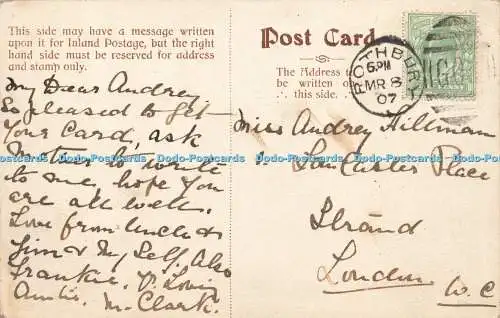 This side may have a message written
upon it for Inland Postage, but the right
hand side must be reserved for address
and stamp only.
My Dear Audrey
So pleased to get
Your Card, ask
Mother to write
to me, hope you
are all well.
Love from Uncle &
Jim & My Self. Also
Frankie. Yr Loving
Auntie. M. Clark.
Post Card.
The Address to
be written on
this side.
ROTHBURY
6.PM
MR 8
07
Miss Audrey Hillman
Lancaster Place
Strand
London W.C
Dodo-Postcards Dodo-Postcards Dodo-Postcards Dodo-Postcards Dodo-Postcards